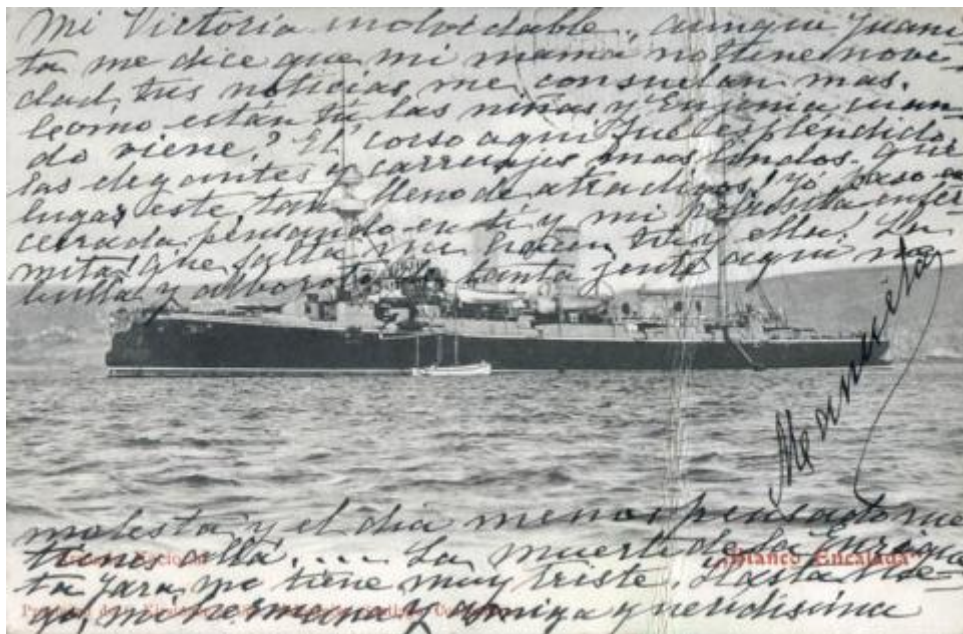 Mi Victoria inolvidable, aunque Juani-
ta me dice que mi mamá no tiene nove-
dad, tus noticias me consuelan mas.
Como están tú las niñas y Eujenia, cuan-
do viene? El corso aquí fué espléndido,
las elegantes y carruajes mas lindos. que
lugar este, tan lleno de atractivos! yó paso en-
cerrada pensando en tí y mi enfer-
mita! que falta me hacen tú y ella! La
bulla y alboroto de tanta jente aqui me
Manueta
molesta y el dia menos pensado me
tiene allá.... La muerte de la Enrique-
ta Jara, me tiene muy triste. Hasta lue-
go, mi hermana y amiga queridísima
"Blanco Encalada"